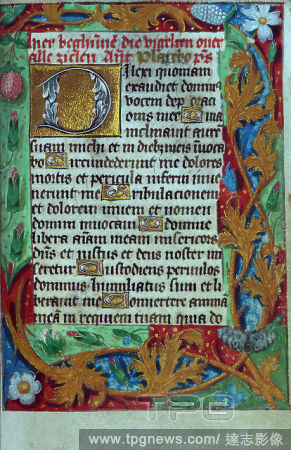 hier beghinnē die vigelien over
alle zielen Añt Placebo ps
Dilexi quoniam
exaudiet domin
vocem dep oraci
onis mee Quia
inclinavit aurē
suam michi et in diebz meis īvoca
bo Circundederunt me dolores
mortis et pericula inferni inve
nerunt me Tribulacionem
et dolorem inveni et nomen
domini invocavi O domine
libera aīam meam misericors
dn̄s et iustus et deus noster mi
seretur Custodiens parvulos
dominus humiliatus sum et li
beravit me Convertere animā
meā in requiem tuam quia do
TPG
www.tpgnews.com / 達志影像